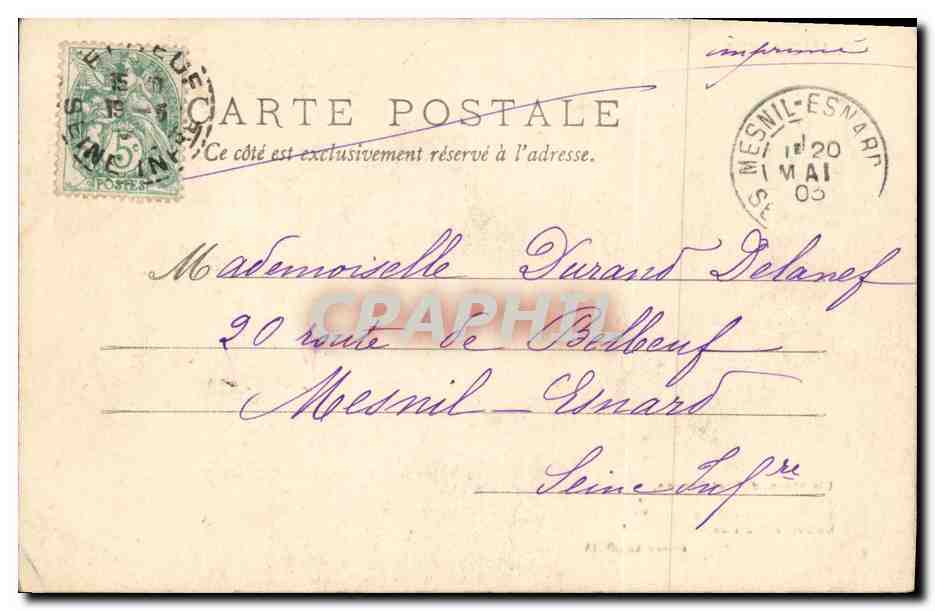 imprimé
CARTE POSTALE
Ce côté est exclusivement réservé à l'adresse.
5c
POSTES
SEINE INF
15
19
MESNIL-ESNARD
20
MAI
SE
Mademoiselle Durand Delanef
20 route de Belbeuf
Mesnil-Esnard
Seine Infre
CPAPHIL